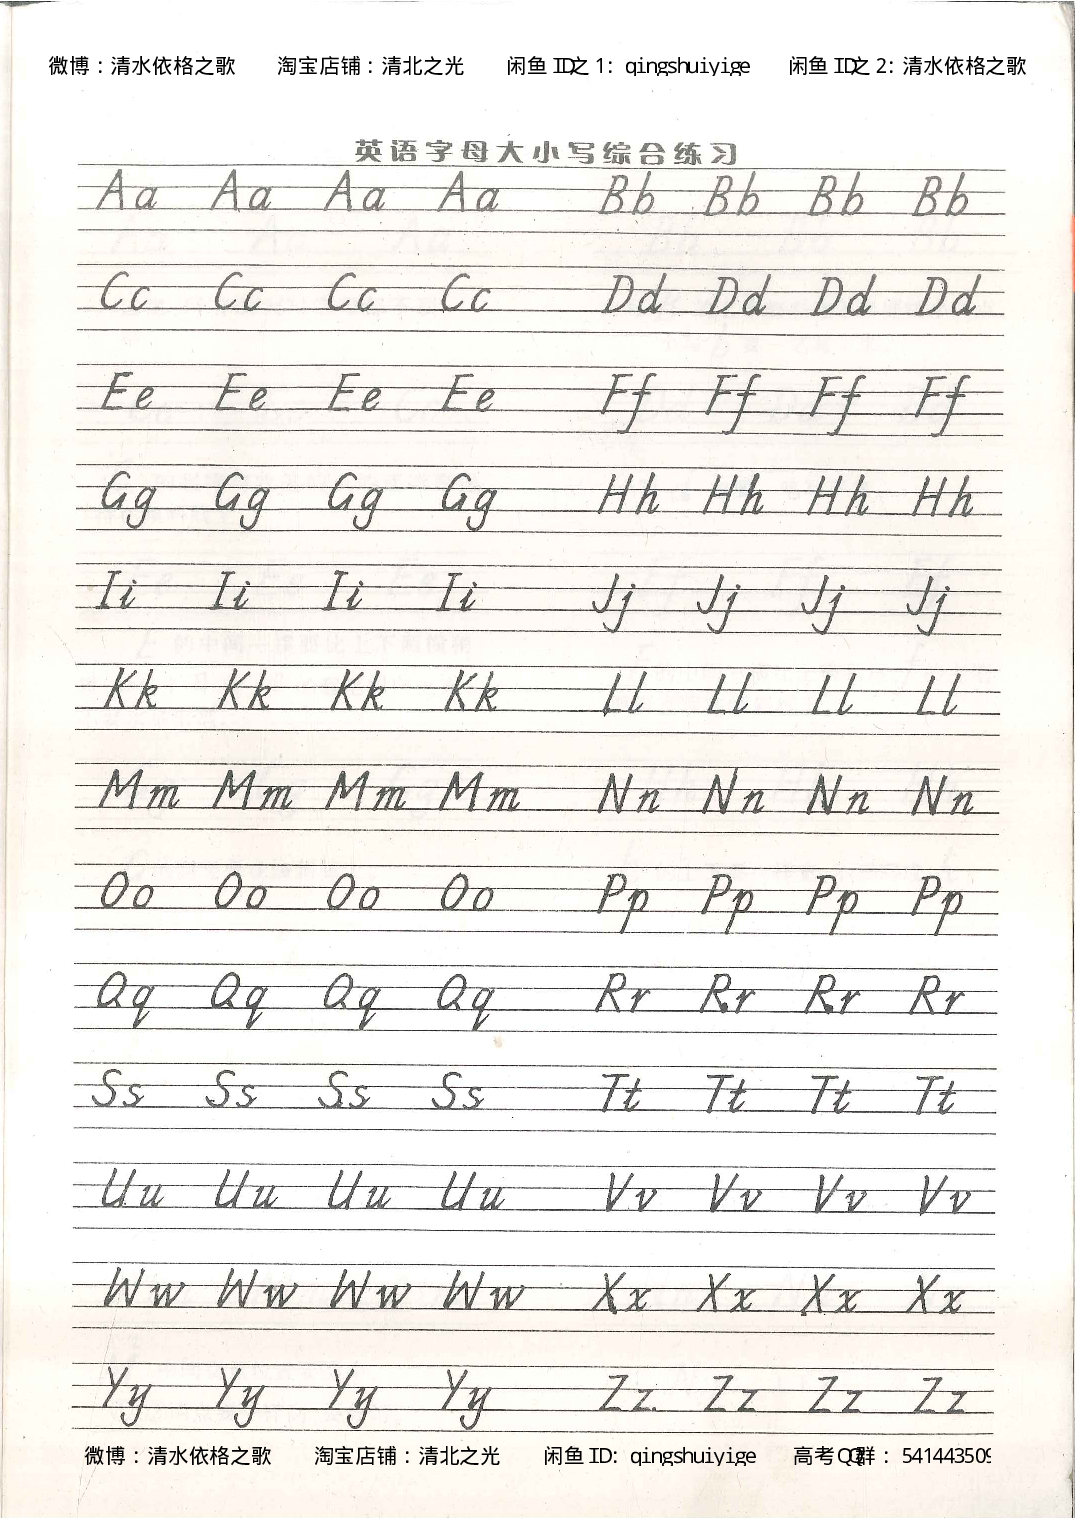 微博：清水依格之歌 淘宝店铺：清北之光 闲鱼 ID之 1: qingshuiyige 闲鱼 ID之 2: 清水依格之歌
英语字母大小写综合练习
Aa Aa Aa Aa Bb Bb Bb Bb
Cc Cc Cc Cc Dd Dd Dd Dd
Ee Ee Ee Ee Ff Ff Ff Ff
Gg Gg Gg Gg Hh Hh Hh Hh
Ii Ii Ii Ii Jj Jj Jj Jj
Kk Kk Kk Kk Ll Ll Ll Ll
Mm Mm Mm Mm Nn Nn Nn Nn
Oo Oo Oo Oo Pp Pp Pp Pp
Qq Qq Qq Qq Rr Rr Rr Rr
Ss Ss Ss Ss Tt Tt Tt Tt
Uu Uu Uu Uu Vv Vv Vv Vv
Ww Ww Ww Ww Xx Xx Xx Xx
Yy Yy Yy Yy Zz Zz Zz Zz
微博：清水依格之歌 淘宝店铺：清北之光 闲鱼 ID: qingshuiyige 高考QQ群：541443509